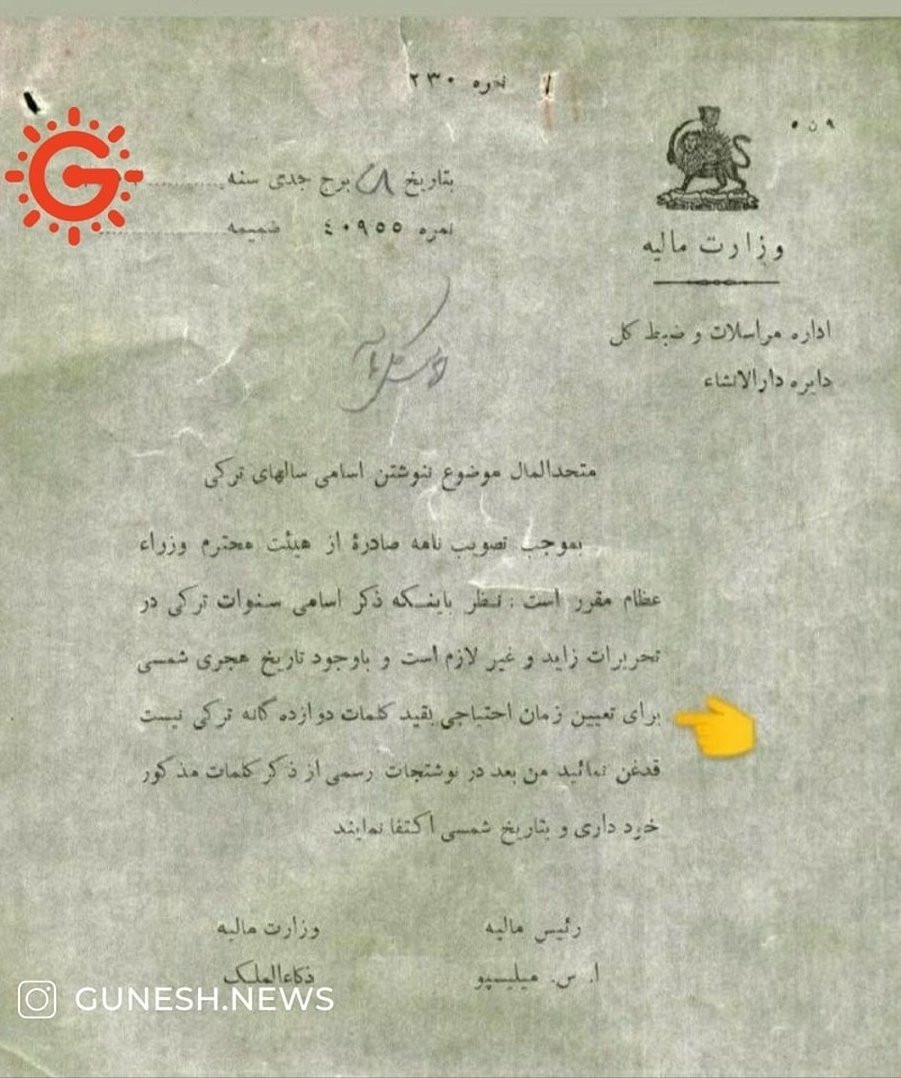 نمره ۲۳۰
۵ ن ۹
بتاریخ برج جدی سنه
نمره ۴۰۹۵۵ ضمیمه
وزارت مالیه
اداره مراسلات و ضبط کل
دایره دارالانشاء
متحدالمال موضوع ننوشتن اسامی سالهای ترکی
بموجب تصویب نامه صادرۀ از هیئت محترم وزراء
عظام مقرر است : نظر باینکه ذکر اسامی سنوات ترکی در
تحریرات زاید و غیر لازم است و باوجود تاریخ هجری شمسی
برای تعیین زمان احتیاجی بقید کلمات دوازده گانه ترکی نیست
قدغن نمائید من بعد در نوشتجات رسمی از ذکر کلمات مذکور
خود داری و بتاریخ شمسی اکتفا نمایند
رئیس مالیه وزارت مالیه
ا. س. میلیسپو ذکاءالملک
GUNESH.NEWS